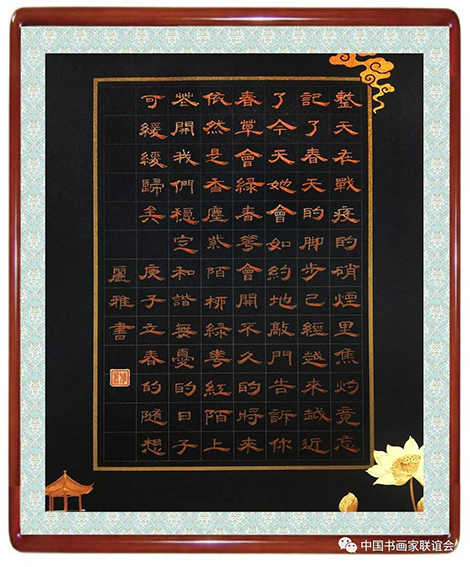 整天在戰疫的硝煙里焦灼竟忘
記了春天的脚步已經越來越近
了今天她會如約地敲門告訴你
春草會緑春華會開不久的將來
依然是香塵紫陌柳緑華紅陌上
花開我們穩定和諧無憂的日子
可緩緩歸矣 庚子立春的隨想
麗雅書
中国书画家联谊会